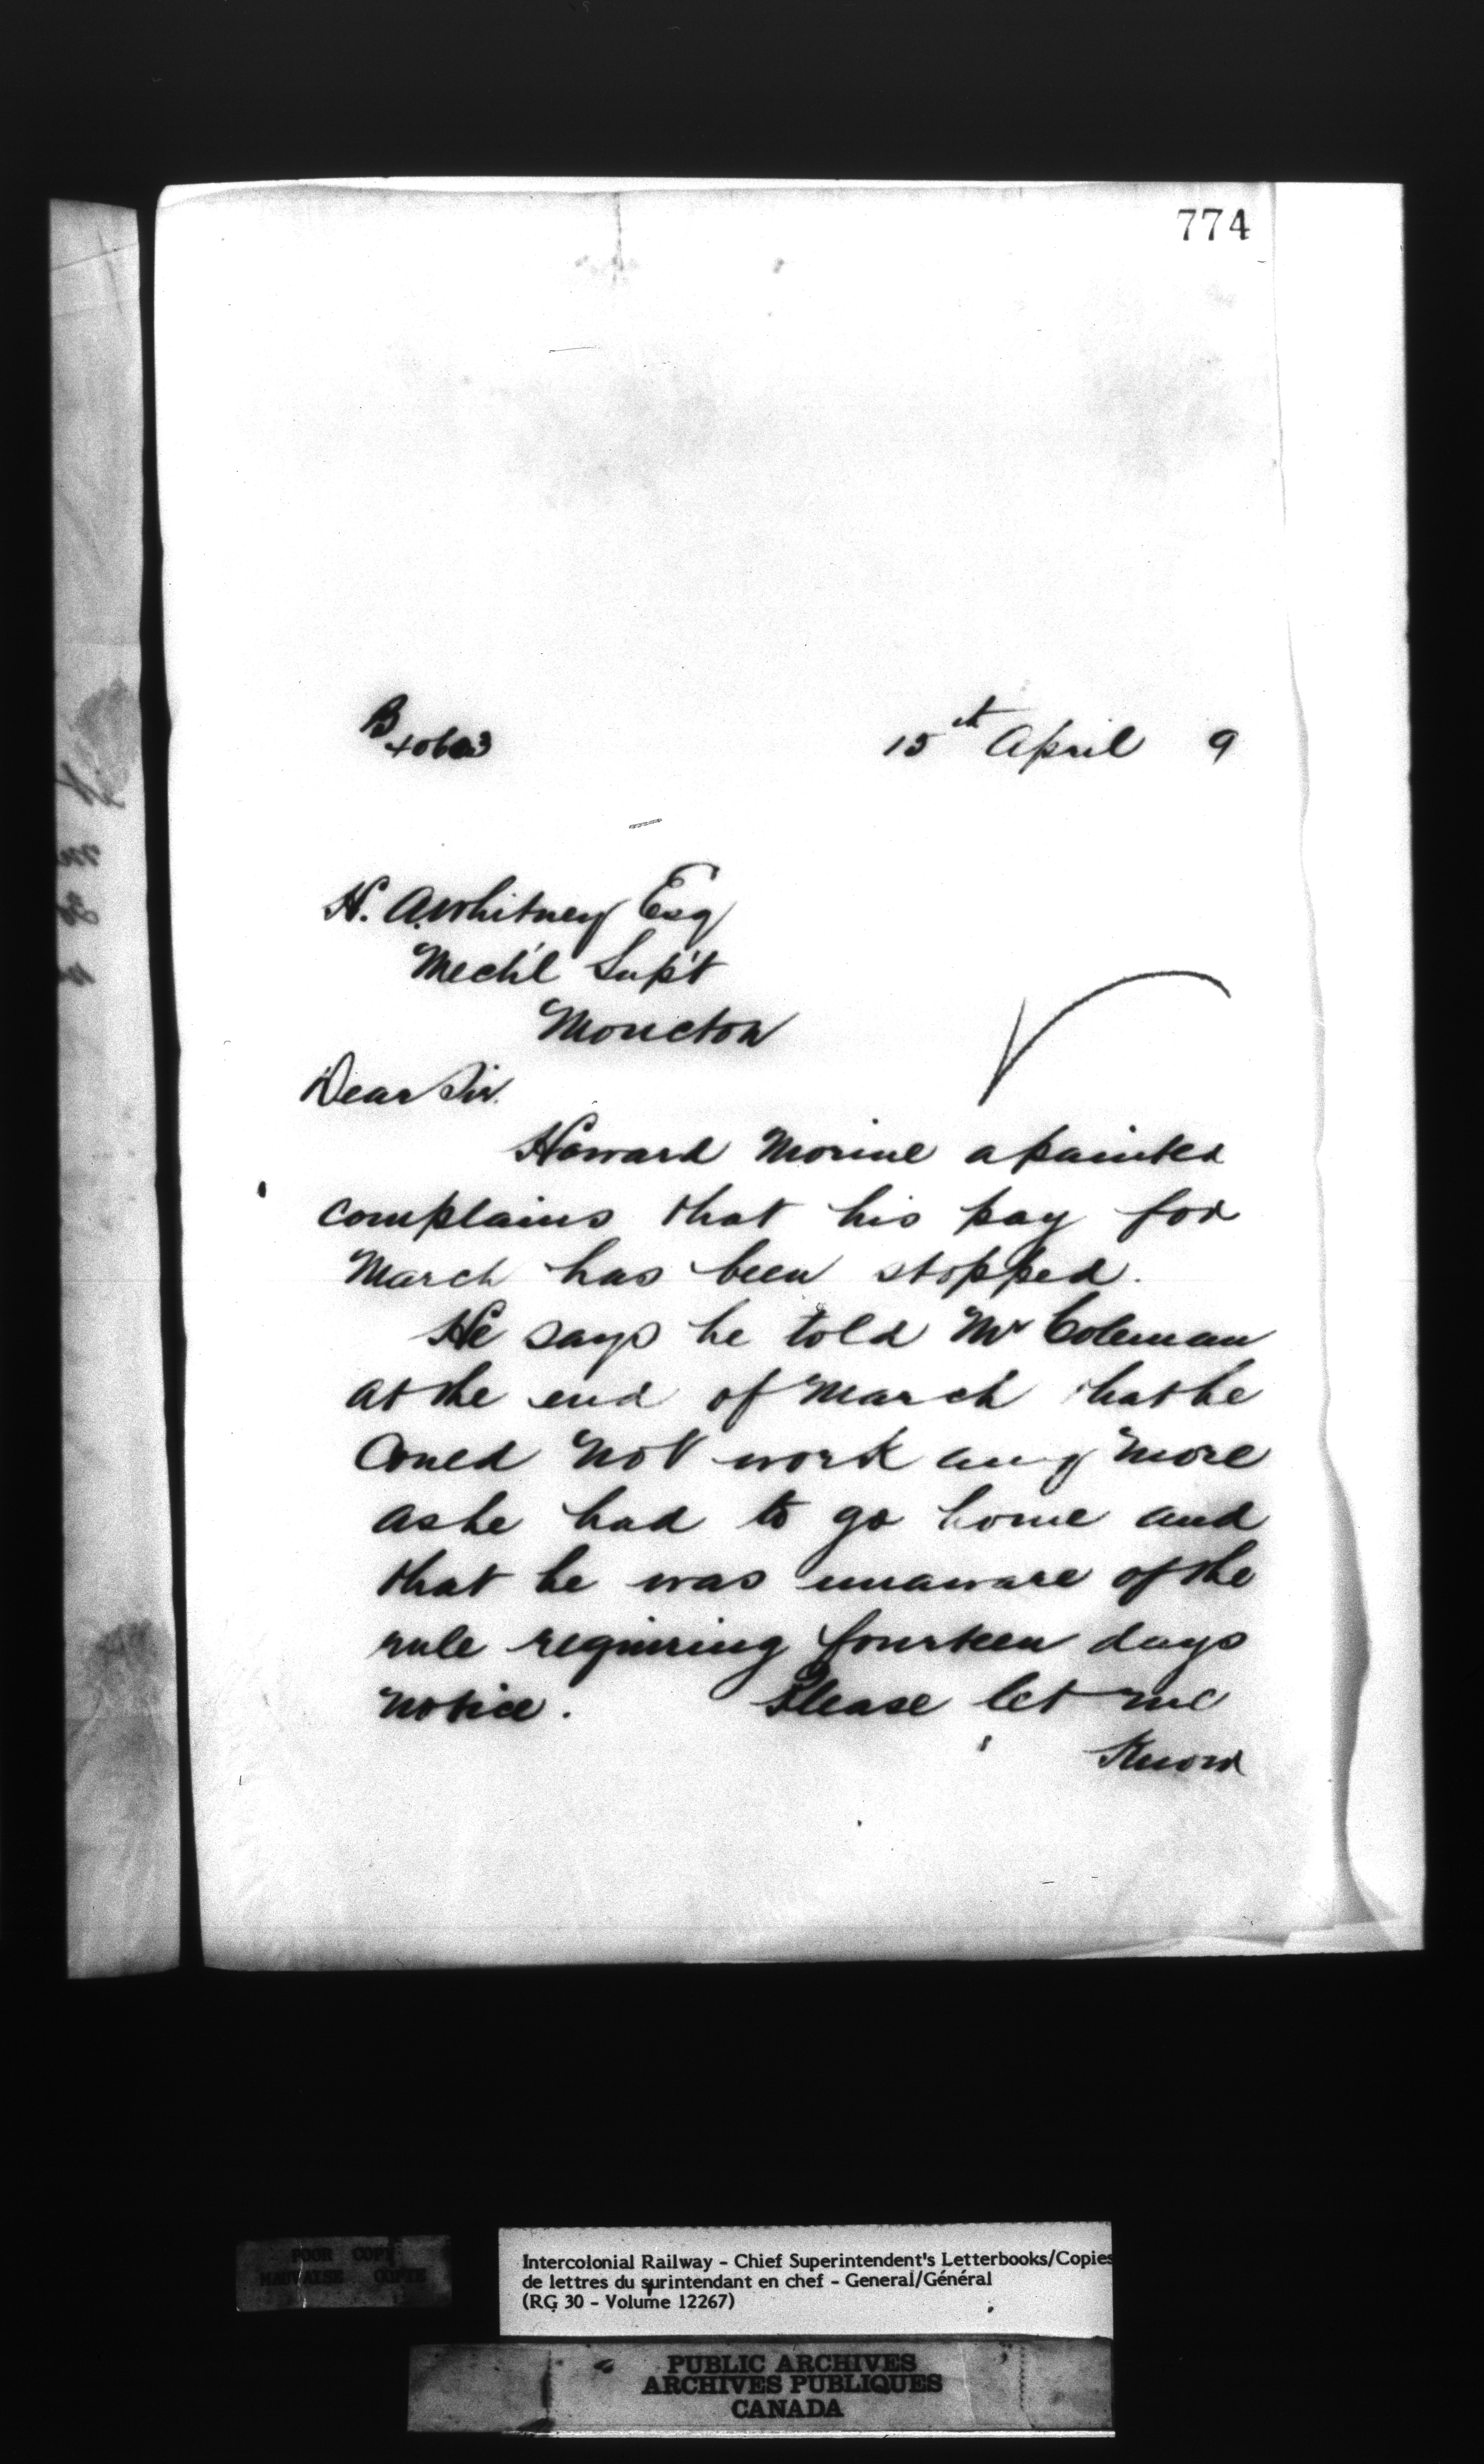 774
B
15th April 9
H. A. Whitney Esq
Mech'l Sup't
Moncton
Dear Sir.
Howard Morine a painter
complains that his pay for
March has been stopped.
He says he told Mr Coleman
at the end of March that he
Could not work any more
as he had to go home and
that he was unaware of the
rule requiring fourteen days
notice. Please let me
Know
POOR COPY
MAUVAISE COPIE
Intercolonial Railway - Chief Superintendent's Letterbooks/Copies
de lettres du surintendant en chef - General/Général
(RG 30 - Volume 12267)
PUBLIC ARCHIVES
ARCHIVES PUBLIQUES
CANADA